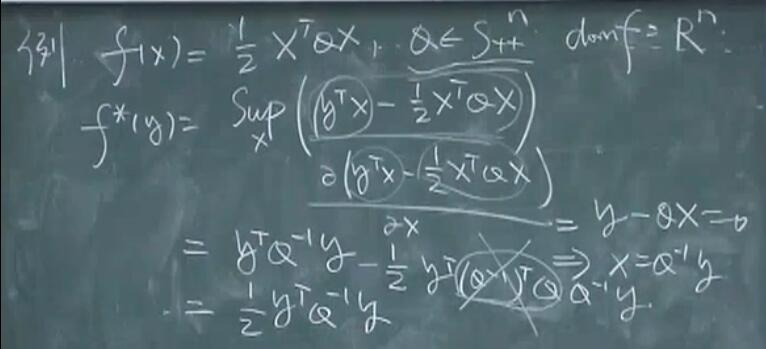 例 f(x) = 1/2 x^T Q x, Q ∈ S_{++}^n domf = R^n.
f*(y) = Sup_x (y^T x - 1/2 x^T Q x)
∂(y^T x - 1/2 x^T Q x) / ∂x = y - Qx = 0
⇒ x = Q^{-1} y
= y^T Q^{-1} y - 1/2 y^T (Q^{-1})^T Q Q^{-1} y
= 1/2 y^T Q^{-1} y